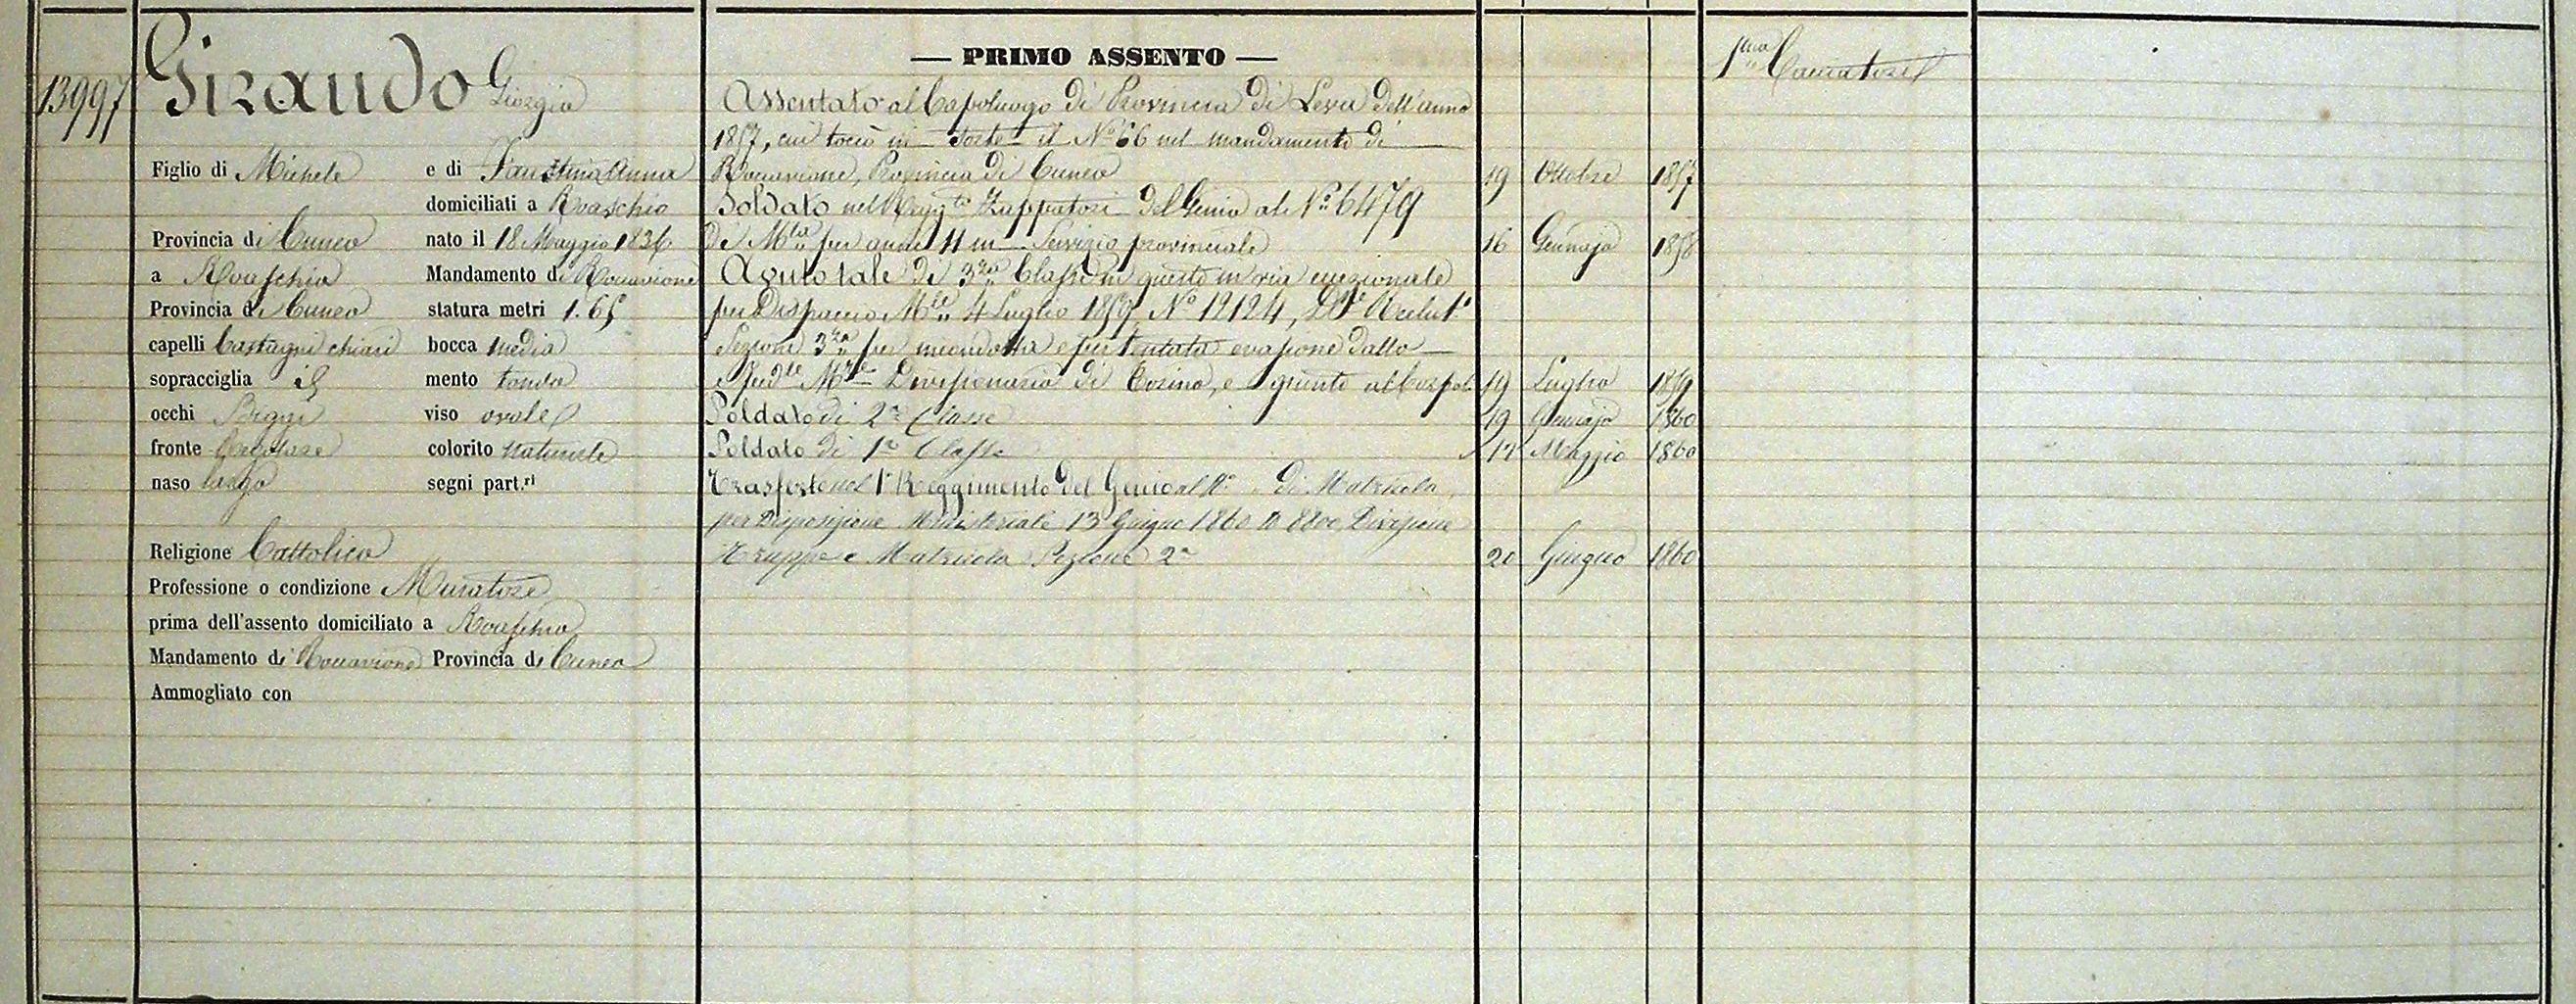 13997
Giraudo Giorgio
Figlio di Michele e di Faustina Anna
domiciliati a Roaschio
Provincia di Cuneo nato il 18 Maggio 1836
a Roaschia Mandamento di Roccavione
Provincia di Cuneo statura metri 1.65
capelli Castagni chiari bocca media
sopracciglia id mento tondo
occhi Biggi viso ovale
fronte Regolare colorito Naturale
naso largo segni part.ri
Religione Cattolica
Professione o condizione Muratore
prima dell'assento domiciliato a Roaschia
Mandamento di Roccavione Provincia di Cuneo
Ammogliato con
— PRIMO ASSENTO —
Assentato al Capoluogo di Provincia di Leva dell'anno
1857, cui toccò in sorte il No 66 nel mandamento di
Roccavione, Provincia di Cuneo 19 Ottobre 1857
Soldato nel Reggto Zappatori del Genio al No 6479
di Mla per anni 11 in Servizio provinciale 16 Gennajo 1858
Avuto tale di 3za Classe in questo in via eccezionale
per Dispaccio Mle 4 Luglio 1859 No 12124,
Sezione 3za per incondotta e per tentata evasione dallo
Divisionario di Torino, e giunto al Corpo 19 Luglio 1859
Soldato di 2a Classe 19 Gennajo 1860
Soldato di 1a Classe 17 Maggio 1860
Trasferto nel 1o Reggimento del Genio al No " di Matricola
per Disposizione Ministeriale 13 Giugno 1860 N 8800, Divisione
Truppe e Matricola Sezione 2a 20 Giugno 1860